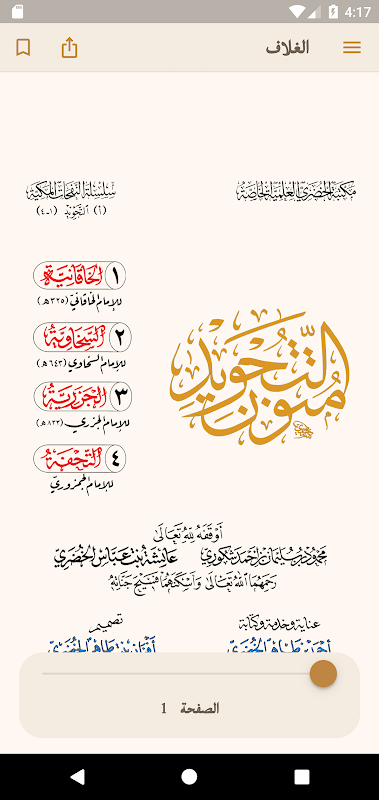 4:17
الغلاف
مكتبة الخضري العلمية الخاصة
سلسلة النفحات المكية
(١) التجويد (١-٤)
متون التجويد
١ الخاقانية
للإمام الخاقاني (٣٢٥هـ)
٢ السخاوية
للإمام السخاوي (٦٤٣هـ)
٣ الجزرية
للإمام الجزري (٨٣٣هـ)
٤ التحفة
للإمام الجمزوري
أَوْقَفَهُ لِلَّهِ تَعَالَى
محمود بن سليمان بن أحمد شكوري عائشة بنت عباس الخضري
رحمهما الله تعالى وأسكنهما فسيح جناته
عناية وخدمة وكتابة
تصميم
أحمد بن طاهر الخضري
أفنان بنت طاهر الخضري
الصفحة 1